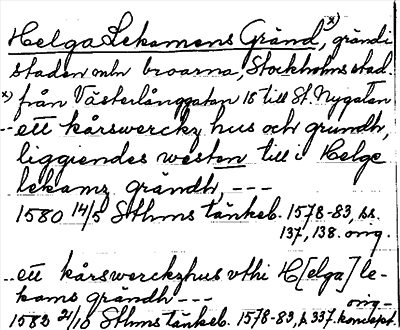 Helga Lekamens Gränd, x) gränd i
staden mln broarna, Stockholms stad.
x) från Västerlånggatan 15 till St. Nygatan
-- ett kårswerckz hus och grundh,
liggiendes westen till i Helge
lekamz grändh, ---
1580 14/5 Sthms tänkeb. 1578-83, ss.
137, 138. orig.
-- ett kårswerckzhus vthi H[elga] le-
kams grändh ---
orig -
1582 21/10 Sthms tänkeb. 1578-83, s. 337. koncept.